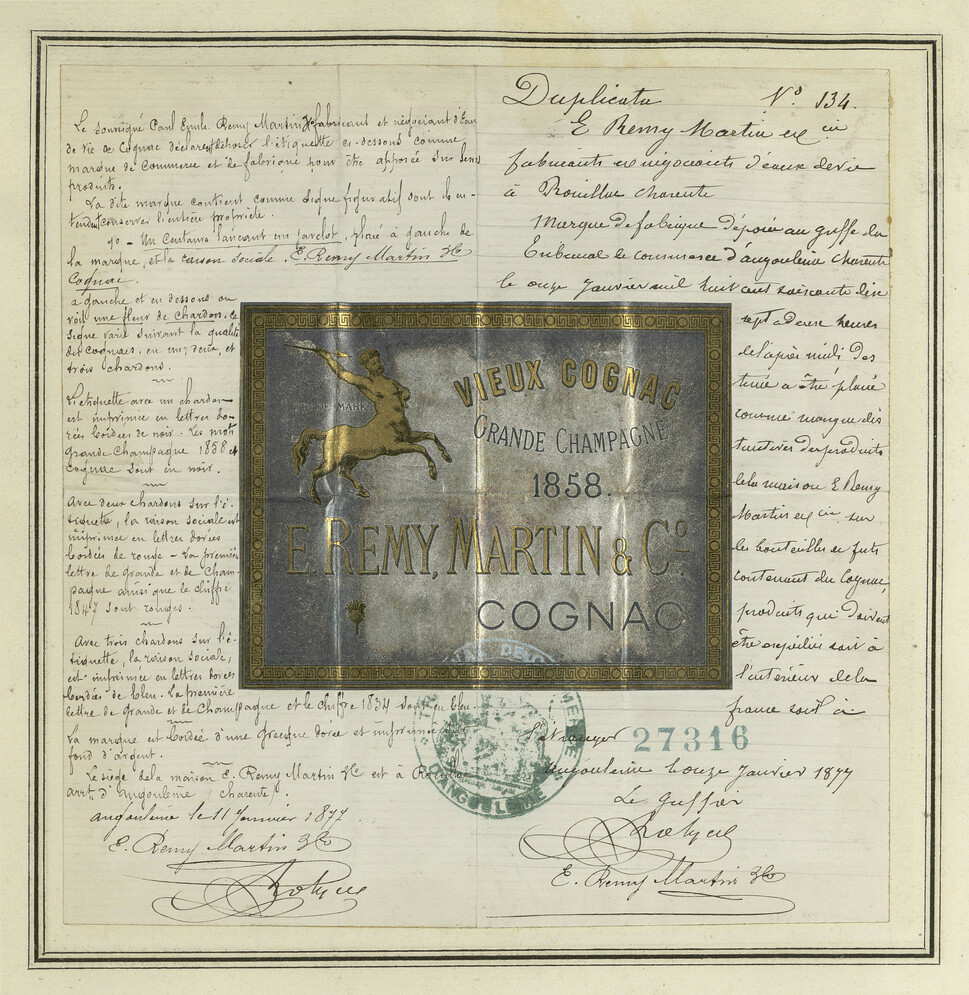 Le soussigné Paul Emile Remy Martin & Co fabricant et négociant d'Eau
de Vie de Cognac déclare déposer l'étiquette ci-dessous comme
marque de Commerce et de fabrique pour être apposée sur leurs
produits.
La dite marque contient comme signe figuratif dont il en-
tendent conserver l'entière propriété.
1o - Un Centaure lançant un javelot, placé à gauche de
la marque, et la raison sociale E. Remy Martin & Co
Cognac.
à gauche et en dessous on
voit une fleur de chardon. Ce
signe varie suivant la qualité
des Cognacs, en un, deux, et
trois chardons.
L'étiquette avec un chardon
est imprimée en lettres do-
rées bordées de noir. Les mots
Grande Champagne 1858 et
Cognac sont en noir.
Avec deux chardons sur l'é-
tiquette, la raison sociale est
imprimée en lettres dorées
bordées de rouge - La première
lettre de Grande et de Cham-
pagne ainsi que le chiffre
1847 sont rouges.
Avec trois chardons sur l'é-
tiquette, la raison sociale,
est imprimée en lettres dorées
bordées de bleu. La première
lettre de Grande et de Champagne et le chiffre 1834 sont en bleu.
La marque est bordée d'une Grecque dorée et imprimée
fond d'argent.
Le siège de la maison E. Remy Martin & Co est à
arrt d'Angoulême (Charente).
Angoulême le 11 Janvier 1877
E. Remy Martin & Co
Duplicata No. 134.
E Remy Martin et Cie
fabricants et négociants d'eaux de vie
à Rouillac Charente
Marque de fabrique déposée au greffe du
Tribunal de commerce d'Angoulême Charente
le onze Janvier mil huit cent soixante dix
sept à deux heures
de l'après midi Des
tinée à être placée
comme marque dis
tinctive des produits
de la maison E Remy
Martin et Cie sur
les bouteilles et futs
contenant du Cognac,
produits qui doivent
être expédiés soit à
l'intérieur de la
france soit à
l'étranger
27316
Angoulême le onze Janvier 1877
Le Greffier
E. Remy Martin & Co
TRADE MARK
VIEUX COGNAC
GRANDE CHAMPAGNE
1858.
E. REMY, MARTIN & Co.
COGNAC
D'ANGOULEME